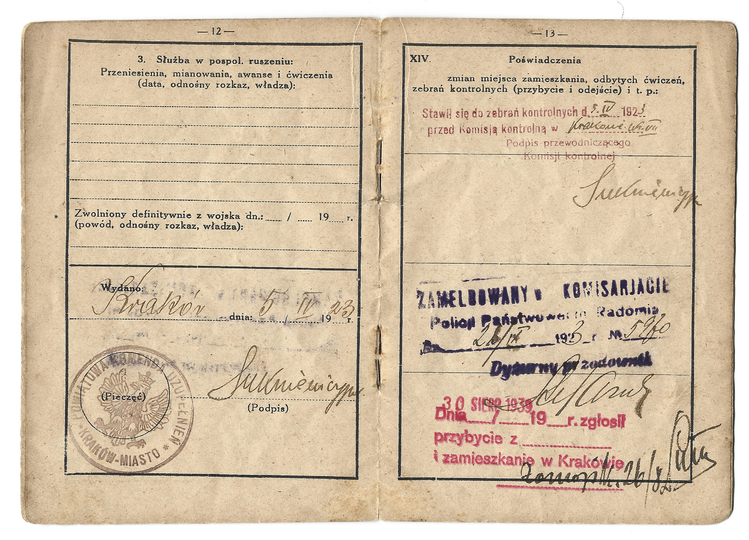 — 12 —
3. Służba w pospol. ruszeniu:
Przeniesienia, mianowania, awanse i ćwiczenia
(data, odnośny rozkaz, władza):
Zwolniony definitywnie z wojska dn.: / 19 r.
(powód, odnośny rozkaz, władza):
Wydano:
Kraków dnia: 5 IV 1923 r.
(Pieczęć)
(Podpis)
POWIATOWA KOMENDA UZUPEŁNIEŃ
* KRAKÓW-MIASTO *
— 13 —
XIV. Poświadczenia
zmian miejsca zamieszkania, odbytych ćwiczeń,
zebrań kontrolnych (przybycie i odejście) i t. p.:
Stawił się do zebrań kontrolnych d. 5. IV 1923
przed Komisją kontrolną w Krakowie
Podpis przewodniczącego
Komisji kontrolnej
ZAMELDOWANY w KOMISARJACIE
Policji Państwowej m. Radomia
192 r. №
Dyżurny przodownik
30 SIERP. 1939
Dnia / 19 r. zgłosił
przybycie z
i zamieszkanie w Krakowie